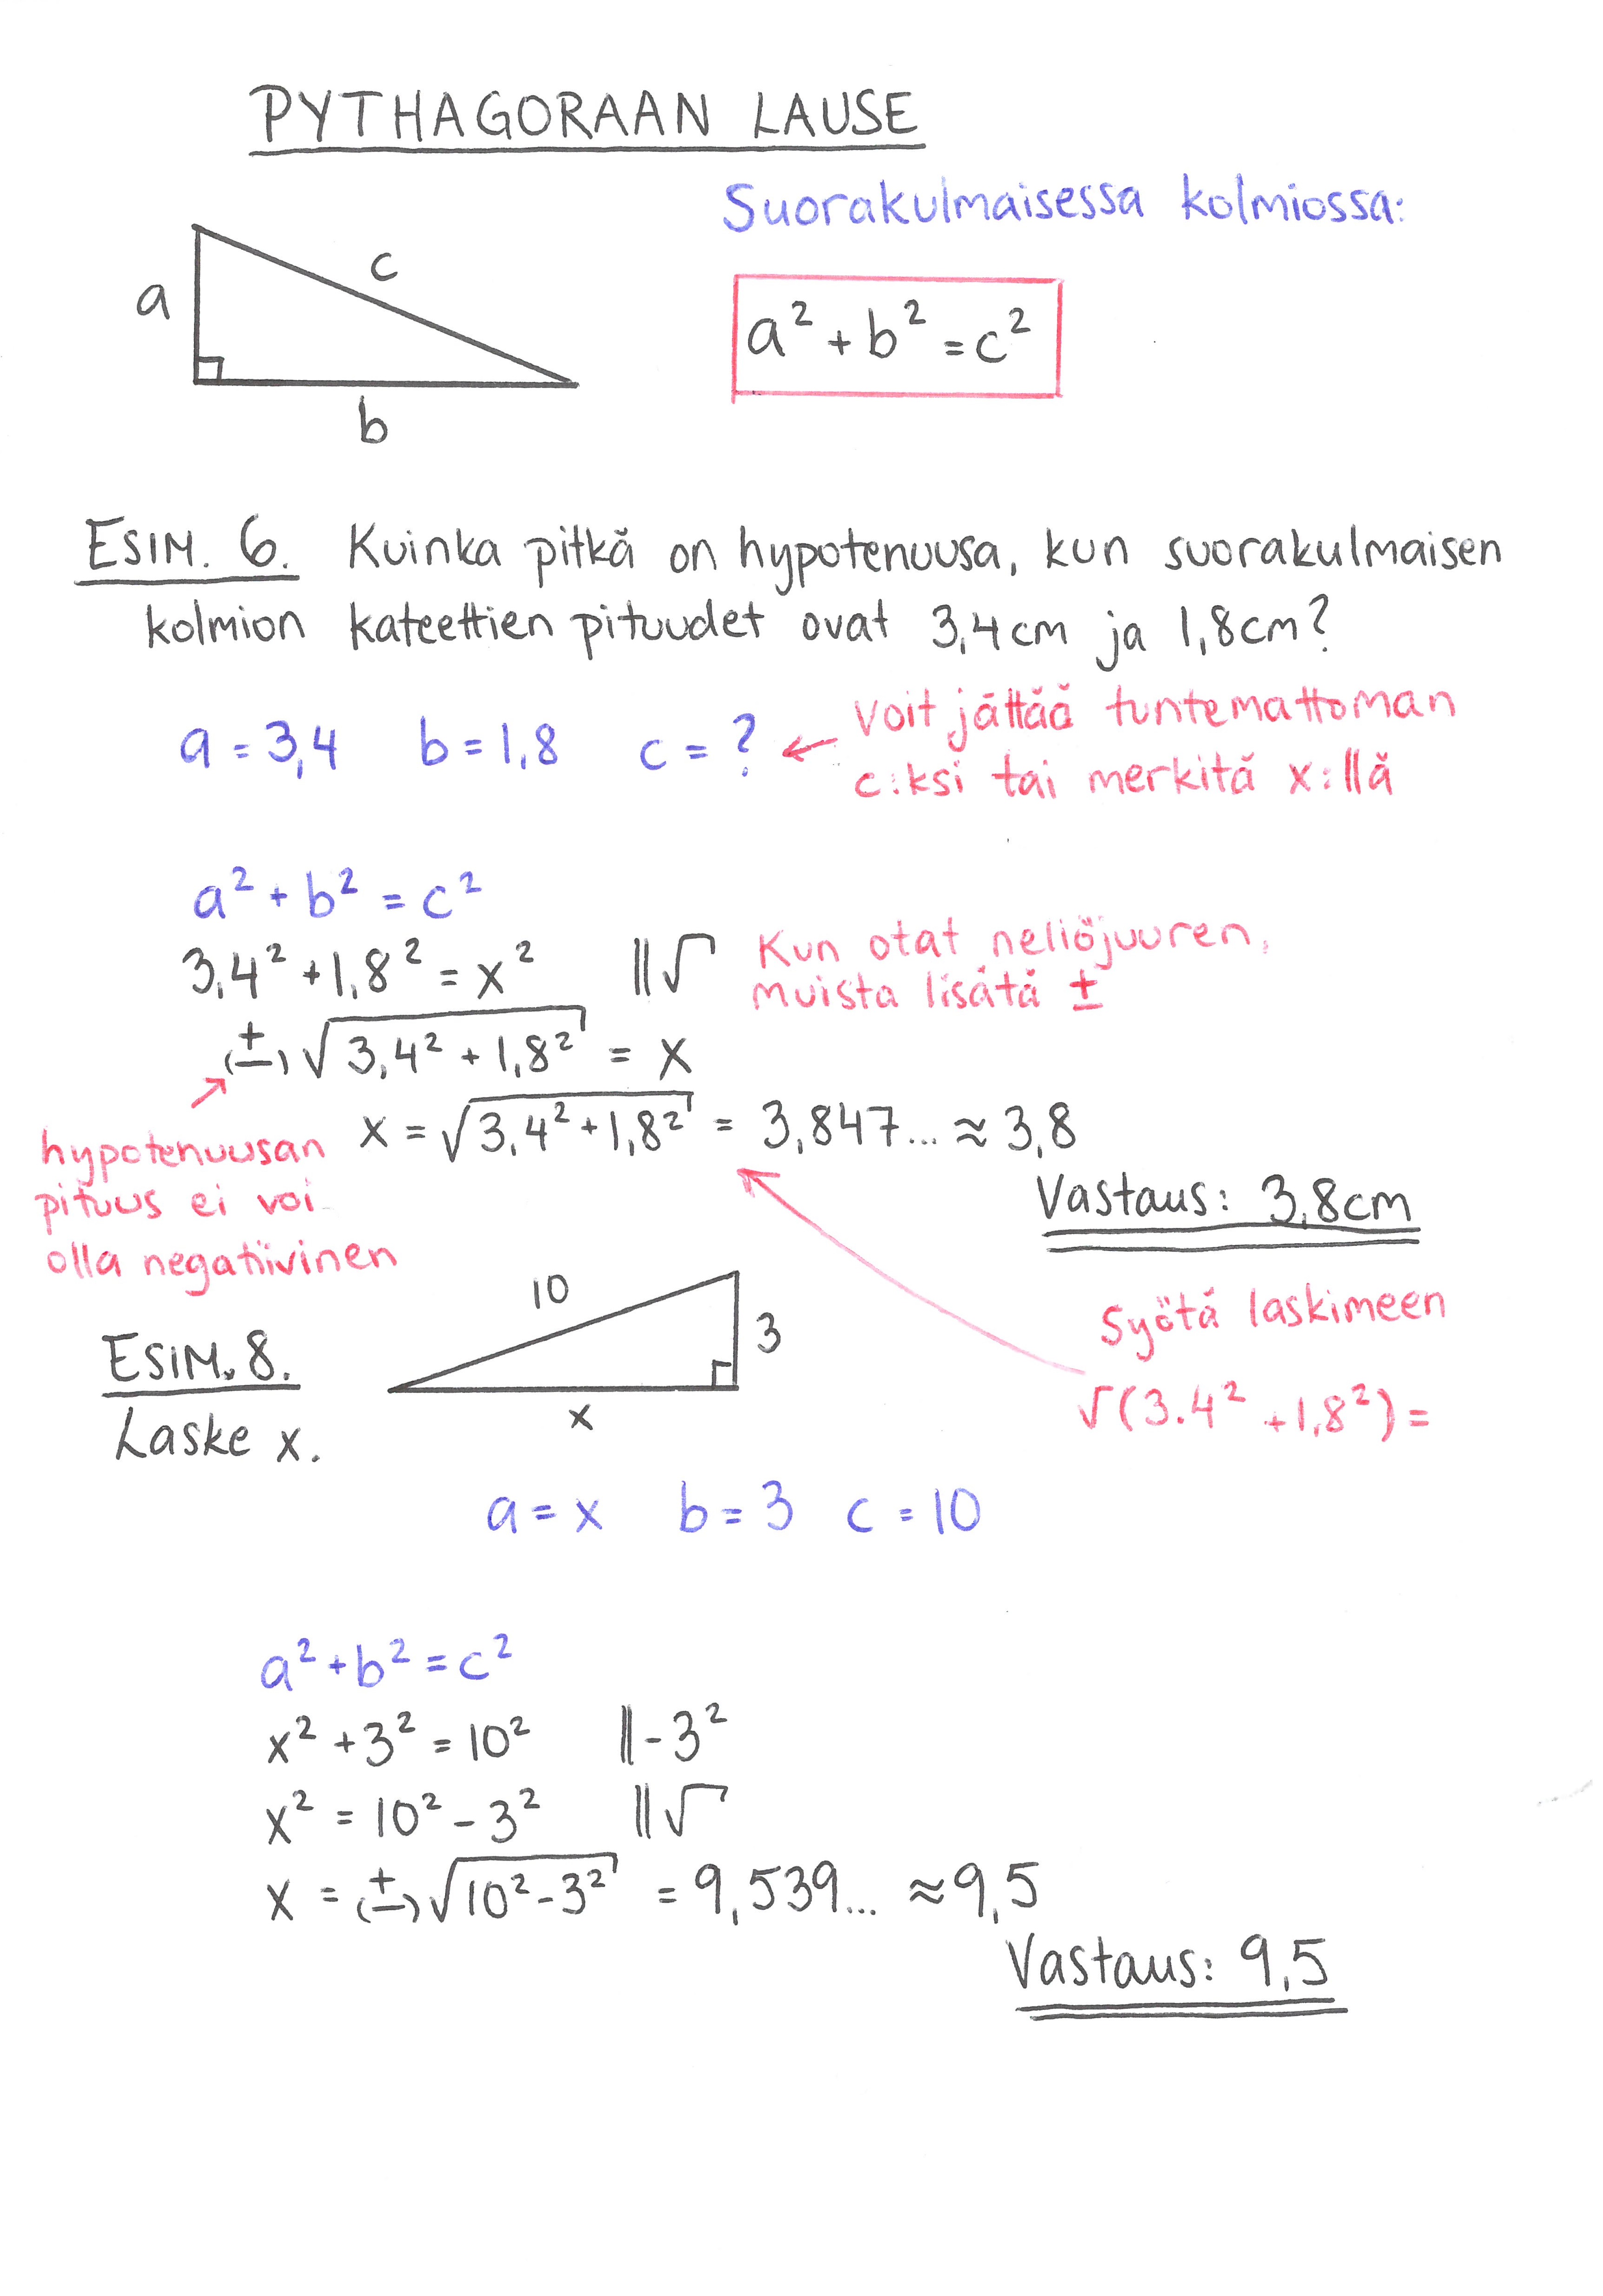 PYTHAGORAAN LAUSE
Suorakulmaisessa kolmiossa:
a
c
b
a² + b² = c²
ESIM. 6. Kuinka pitkä on hypotenuusa, kun suorakulmaisen
kolmion kateettien pituudet ovat 3,4cm ja 1,8cm?
a = 3,4 b = 1,8 c = ? ← Voit jättää tuntemattoman
c:ksi tai merkitä x:llä
a² + b² = c²
3,4² + 1,8² = x² ||√ Kun otat neliöjuuren,
muista lisätä ±
(±)√3,4² + 1,8² = x
x = √3,4² + 1,8² = 3,847... ≈ 3,8
hypotenuusan
pituus ei voi
olla negatiivinen
Vastaus: 3,8cm
Syötä laskimeen
√(3.4² + 1,8²) =
ESIM. 8.
Laske x.
10
3
x
a = x b = 3 c = 10
a² + b² = c²
x² + 3² = 10² ||-3²
x² = 10² - 3² ||√
x = (±)√10² - 3² = 9,539... ≈ 9,5
Vastaus: 9,5